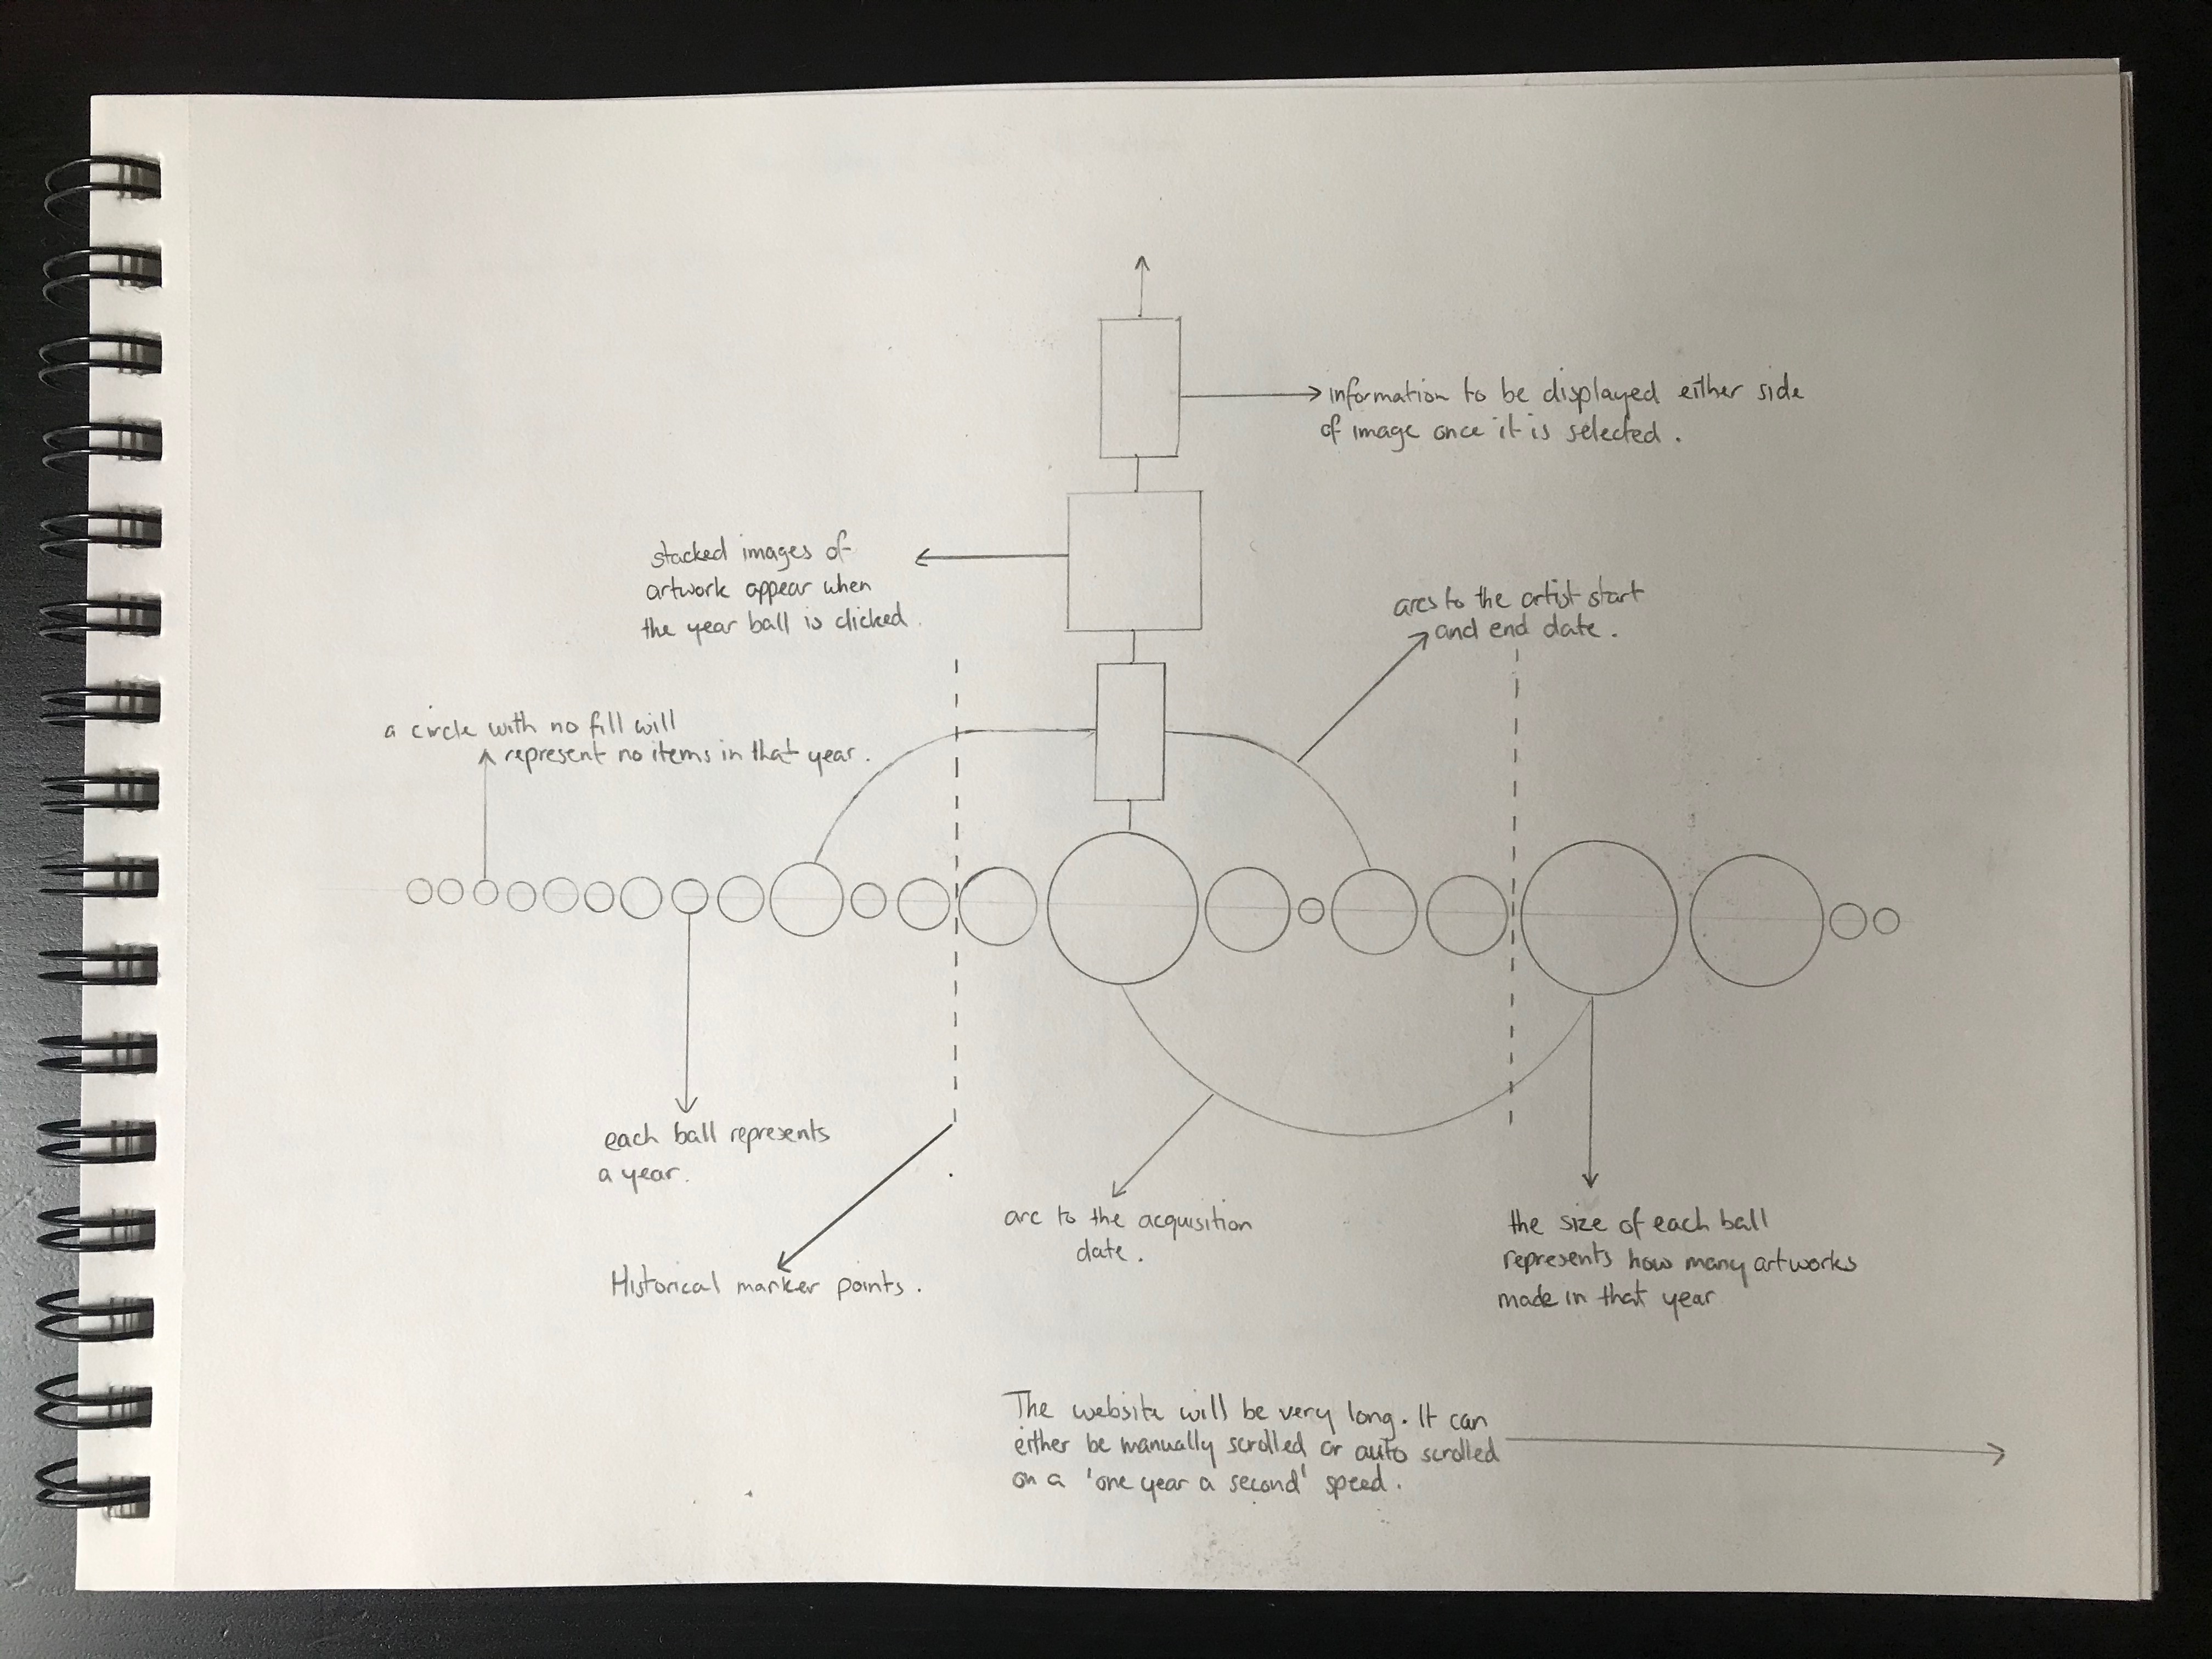 information to be displayed either side
of image once it is selected.
stacked images of
artwork appear when
the year ball is clicked.
arcs to the artist start
and end date.
a circle with no fill will
represent no items in that year.
each ball represents
a year.
Historical marker points.
arc to the acquisition
date.
the size of each ball
represents how many artworks
made in that year
The website will be very long. It can
either be manually scrolled or auto scrolled
on a 'one year a second' speed.